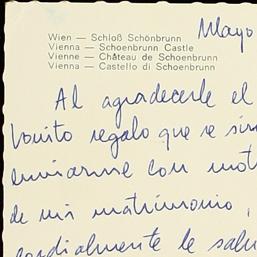 Mayo
Wien — Schloß Schönbrunn
Vienna — Schoenbrunn Castle
Vienne — Château de Schoenbrunn
Vienna — Castello di Schoenbrunn
Al agradecerle el
bonito regalo que se sir
enviarme con mot
de mi matrimonio,
cordialmente le salu